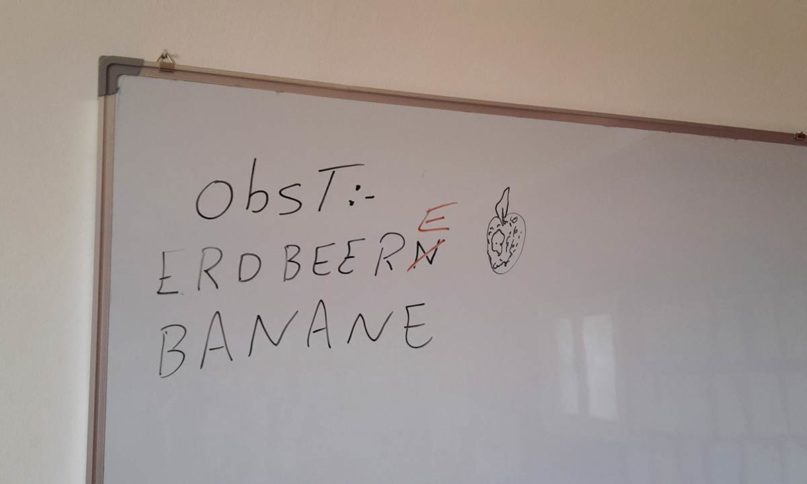 ObsT:-
ERDBEERE
BANANE